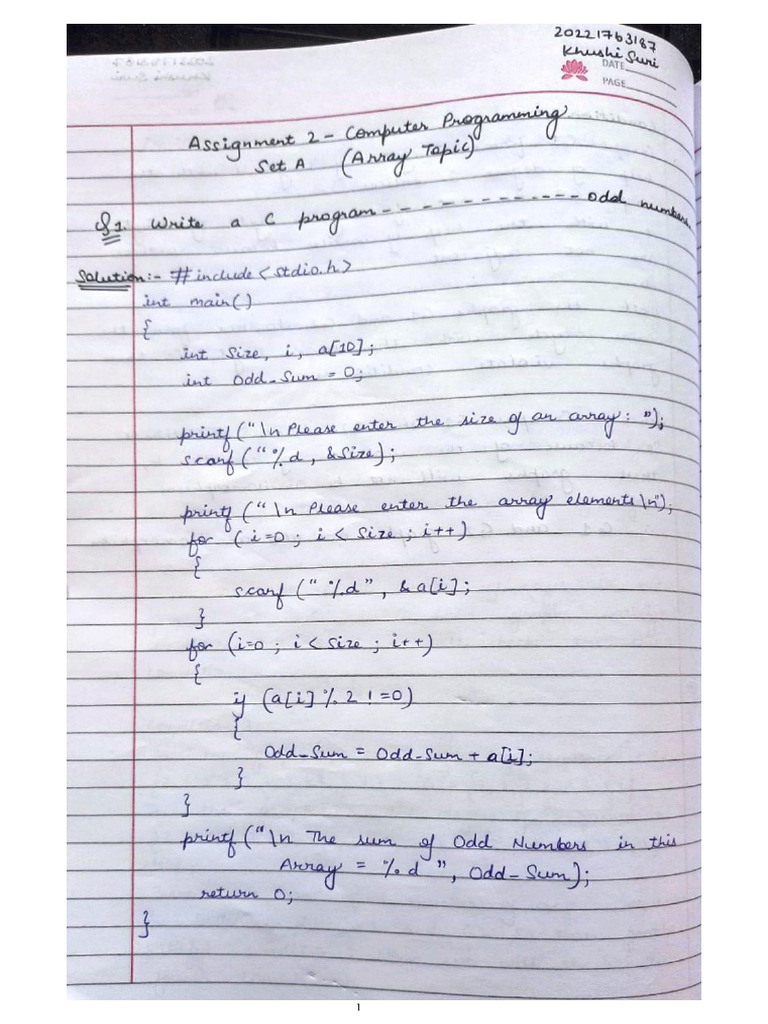 20221763187
Khushi Suri
DATE
PAGE
Assignment 2 - Computer Programming
Set A (Array Topic)
Q1. Write a C program - - - - - - - - - - - - odd numbers.
Solution:- #include <stdio.h>
int main()
{
int Size, i, a[10];
int Odd_Sum = 0;
printf("\n Please enter the size of an array: ");
scanf("%d, &Size);
printf("\n Please enter the array elements\n");
for (i=0; i < Size; i++)
{
scanf("%d", &a[i];
}
for (i=0; i < Size; i++)
{
if (a[i] % 2 != 0)
{
Odd_Sum = Odd_Sum + a[i];
}
}
printf("\n The sum of Odd Numbers in this
Array = %d ", Odd_Sum);
return 0;
}
1